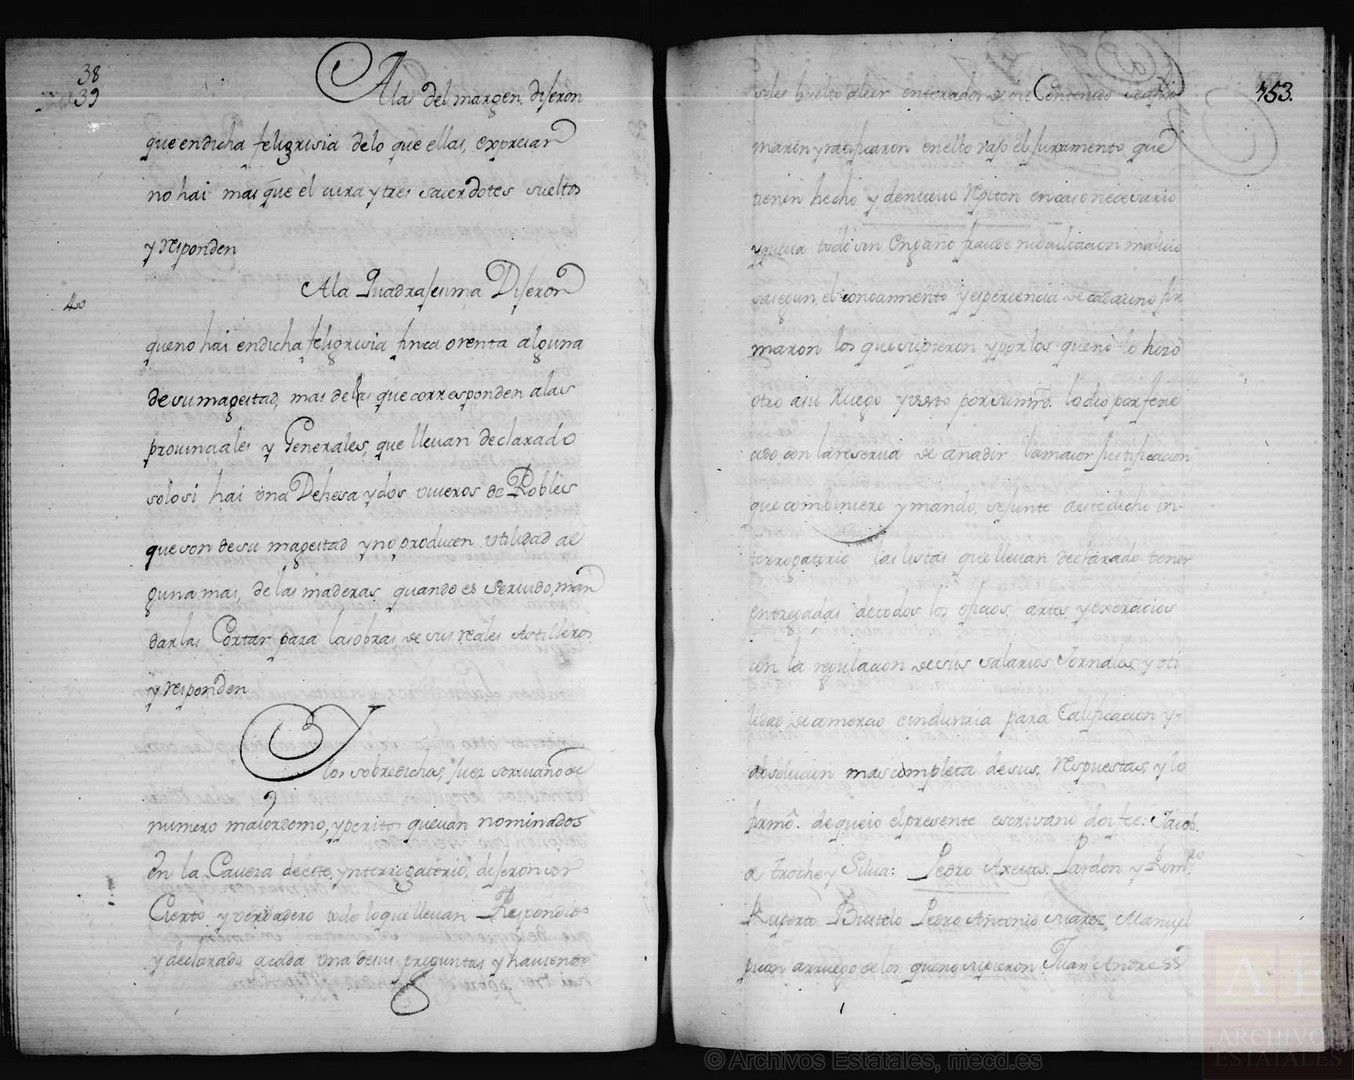 38
39
A las del margen, dijeron
que en dicha feligrisia de lo que ellas, expresan
no hai mas q̃ue el cura y tres sacerdotes sueltos
y responden
40
A la Quadrajesima Dijeron
que no hai en dicha feligrisia finca o renta alguna
de su magestad, mas de las que corresponden a las
provinciales y Generales, que llevan declarado
solo si hai una Dehesa y dos viveros de Robles
que son de su magestad y no producen utilidad al
guna mas, de las maderas quando es servido, man
darlas Cortar para las obras de sus reales Astilleros
y responden
Y
los sobredichos, Juez escrivano de
numero maiordomo, y peritos que van nominados
en la Cavera de este, ynterrogatorio, dijeron ser
Cierto y verdadero todo lo que llevan Respondido
y declarado a cada una de sus preguntas y haviendo
753.
seles buelto a leer enterados de su Contenido se afir
maron y ratificaron en el to vajo el juramento que
tienen hecho y de nuevo repiten en caso necesario
y que va todo sin Engaño fraude ni ocultacion
segun, el conocimiento y esperiencia de cada uno fir
maron los que supieron y por los que no lo hizo
otro a su Ruego y visto por su mrd. lo dio por fene
cido con la reserva de anadir la maior justificacion
que combiniere y mando, se junte a este dicho in-
terrogatorio las listas que llevan declarado tener
entregadas de todos los oficios artes y exercicios
con la regulacion de sus salarios Jornales, y uti
lidad de comercio e industria para Calificacion y-
absolucion mas completa de sus, respuestas, y lo
firmõ. de que io el presente escrivano doi fee: Jacob.
o troche y Silva: Pedro Pardon y
Ruperto Pedro Antonio Suarez Manuel
a rruego de los que no supieron Juan Andres
A E
ARCHIVOS
ESTATALES
© Archivos Estatales, mecd.es